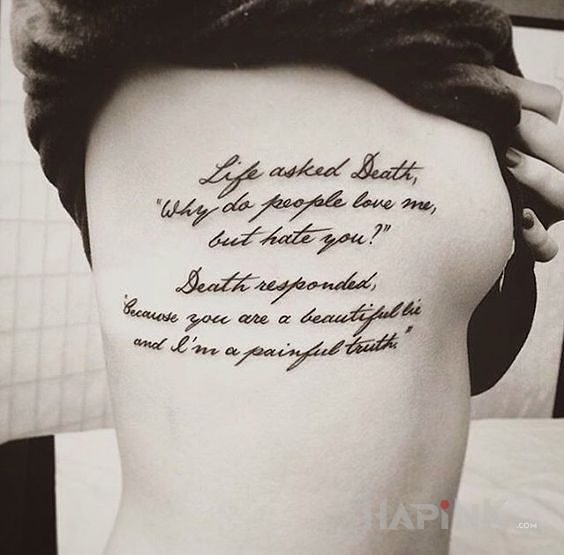 Life asked Death,
"Why do people love me,
but hate you?"
Death responded,
"Because you are a beautiful lie
and I'm a painful truth."
HAPiNK
.COM